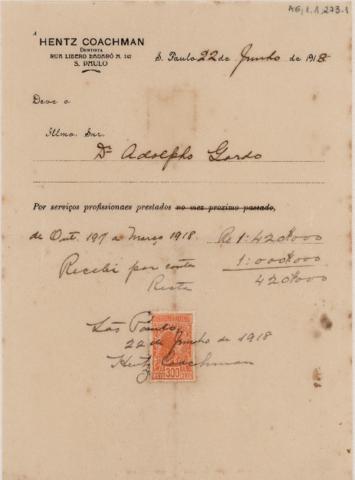 AG,1.1.273-1
A
HENTZ COACHMAN
DENTISTA
RUA LIBERO BADARÓ N. 142
S. PAULO
S. Paulo, 22 de Junho de 1918
Deve o
Illmo. Snr.
Dr. Adolpho Gordo
Por serviços profissionaes prestados no mez proximo passado,
de Out. 1917 a Março 1918. Rs 1:420$000
Recebi por conta 1:000$000
Resta 420$000
São Paulo,
22 de Junho de 1918
Hentz Coachman
300